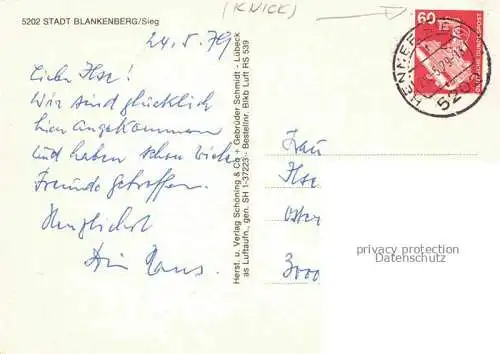 5202 STADT BLANKENBERG/Sieg
(KNICK)
60
DEUTSCHE BUNDESPOST
HENNEF
5202
24.5.79
Liebe Ilse!
Wir sind glücklich
hier angekommen
und haben schon viele
Freunde getroffen.
Herzlichst
Dein Hans.
Herst. u. Verlag Schöning & Co + Gebrüder Schmidt - Lübeck
as Luftaufn., gen. SH 1-37223 - Bestellnr. Blkb Luft RS 539
Frau
Ilse
3000
privacy protection
Datenschutz